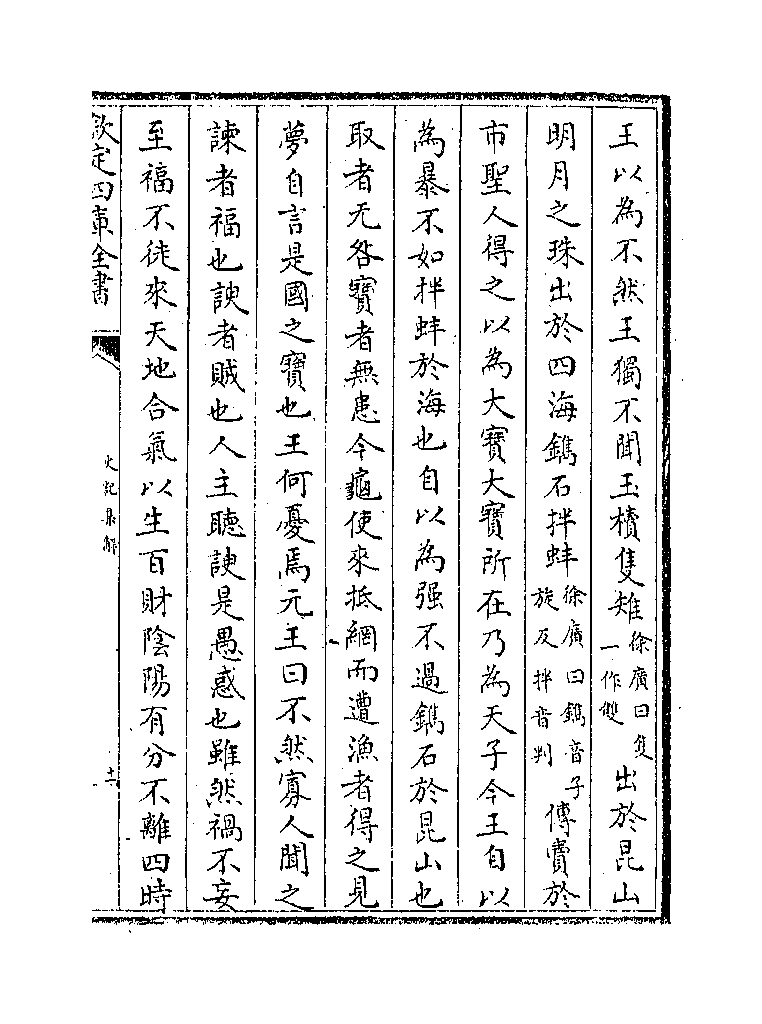 王以為不然王獨不聞玉櫝隻雉徐廣曰隻一作雙出於昆山
明月之珠出於四海鐫石拌蚌徐廣曰鐫音子旋反拌音判傳賣於
市聖人得之以為大寶大寶所在乃為天子今王自以
為暴不如拌蚌於海也自以為强不過鐫石於昆山也
取者无咎寶者無患今龜使來抵網而遭漁者得之見
夢自言是國之寶也王何憂焉元王曰不然寡人聞之
諫者福也諛者賊也人主聽諛是愚惑也雖然禍不妄
至福不徒來天地合氣以生百財陰陽有分不離四時
欽定四庫全書
史記集解